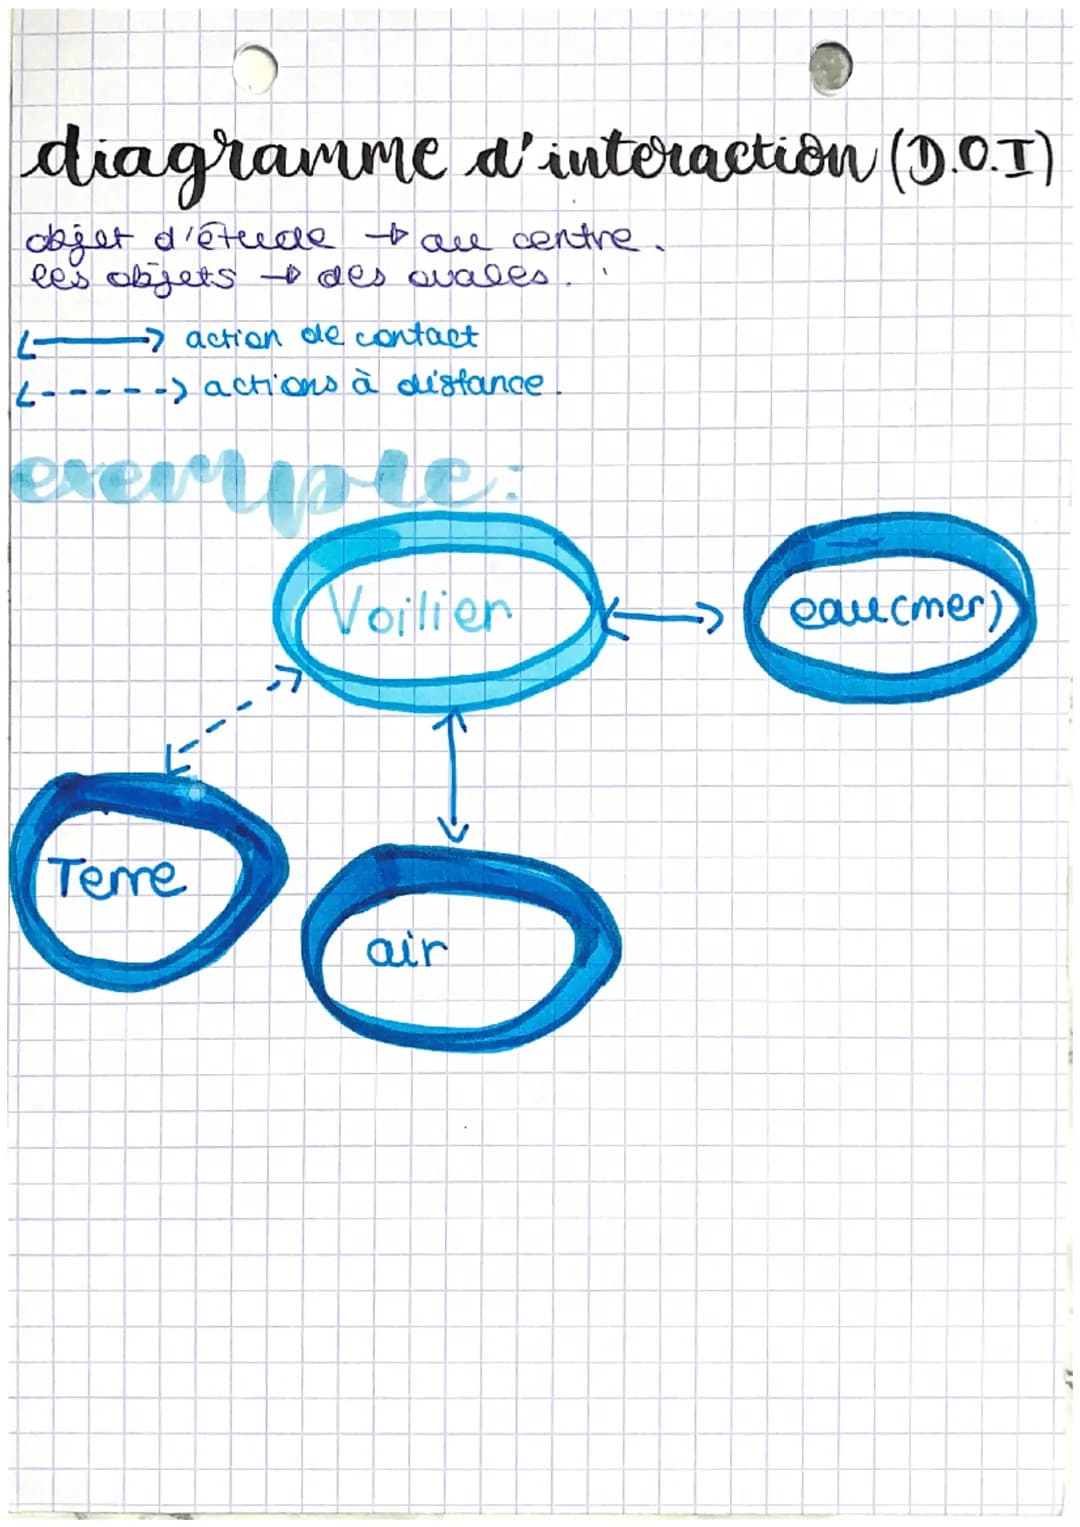 diagramme d'interaction (D.O.I)
objet d'étude → au centre.
les objets → des ovales.
<---> action de contact
<- - - -> actions à distance.
exemple:
Voilier
eau (mer)
Terre
air